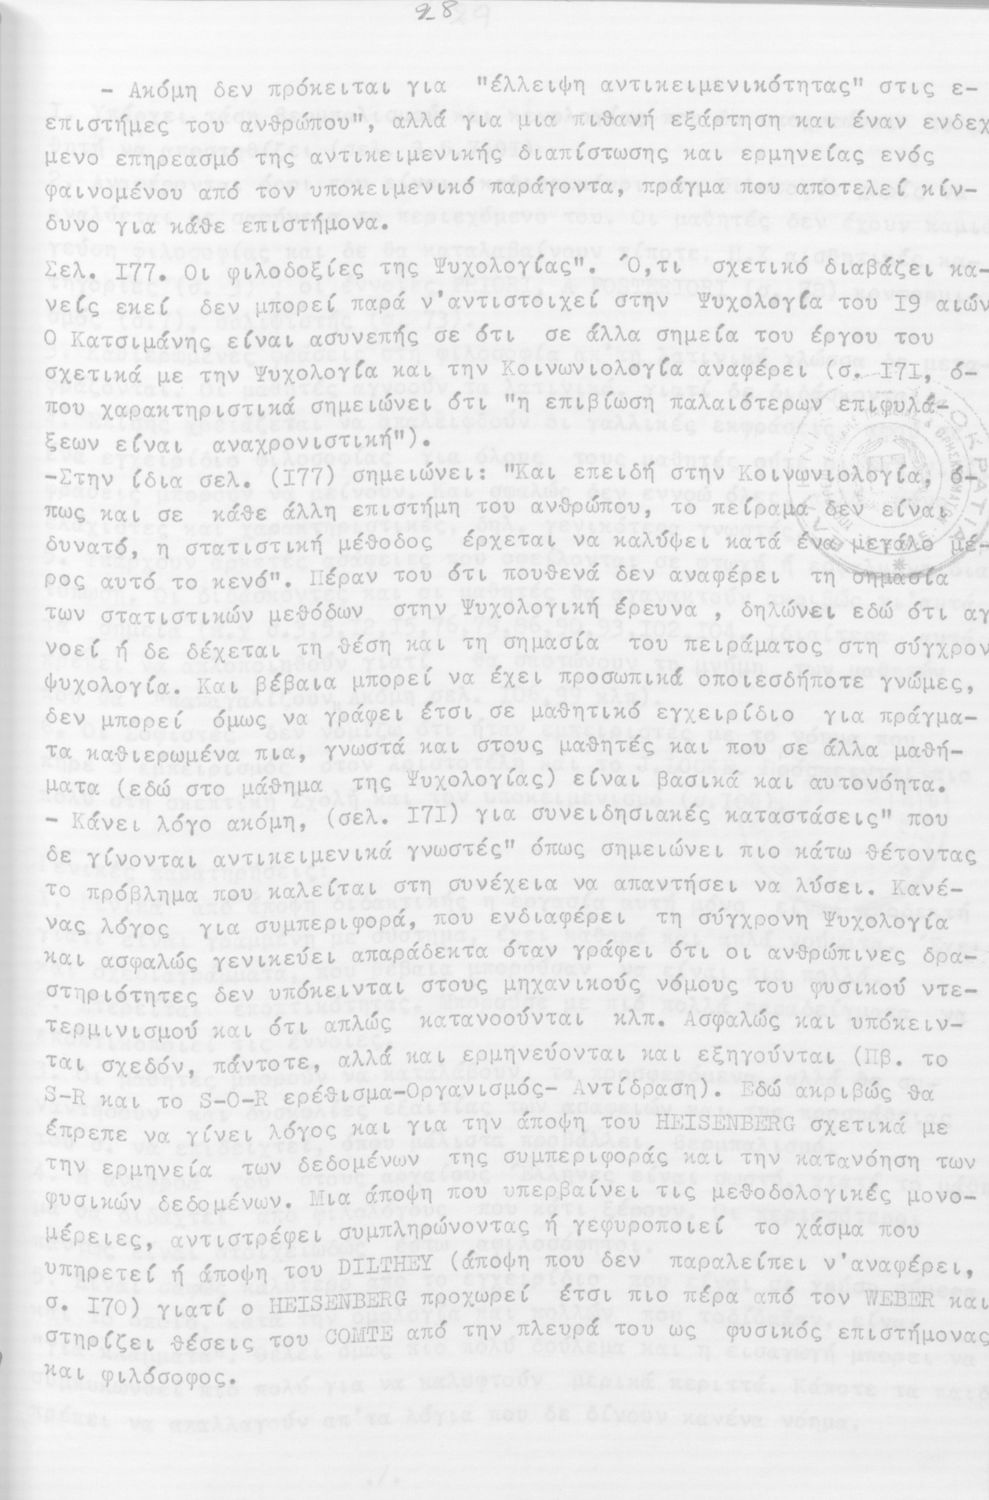 28
- Ακόμη δεν πρόκειται για "έλλειψη αντικειμενικότητας" στις ε-
επιστήμες του ανθρώπου", αλλά για μια πιθανή εξάρτηση και έναν ενδεχ
μενο επηρεασμό της αντικειμενικής διαπίστωσης και ερμηνείας ενός
φαινομένου από τον υποκειμενικό παράγοντα, πράγμα που αποτελεί κίν-
δυνο για κάθε επιστήμονα.
Σελ. I77. Οι φιλοδοξίες της Ψυχολογίας". Ό,τι σχετικό διαβάζει κα-
νείς εκεί δεν μπορεί παρά ν'αντιστοιχεί στην Ψυχολογία του I9 αιών
Ο Κατσιμάνης είναι ασυνεπής σε ότι σε άλλα σημεία του έργου του
σχετικά με την Ψυχολογία και την Κοινωνιολογία αναφέρει (σ. I7I, ό-
που χαρακτηριστικά σημειώνει ότι "η επιβίωση παλαιότερων επιφυλά-
ξεων είναι αναχρονιστική").
-Στην ίδια σελ. (I77) σημειώνει: "Και επειδή στην Κοινωνιολογία, ό-
πως και σε κάθε άλλη επιστήμη του ανθρώπου, το πείραμα δεν είναι
δυνατό, η στατιστική μέθοδος έρχεται να καλύψει κατά ένα μεγάλο μέ-
ρος αυτό το κενό". Πέραν του ότι πουθενά δεν αναφέρει τη σημασία
των στατιστικών μεθόδων στην Ψυχολογική έρευνα , δηλώνει εδώ ότι αγ
νοεί ή δε δέχεται τη θέση και τη σημασία του πειράματος στη σύγχρον
ψυχολογία. Και βέβαια μπορεί να έχει προσωπικά οποιεσδήποτε γνώμες,
δεν μπορεί όμως να γράφει έτσι σε μαθητικό εγχειρίδιο για πράγμα-
τα καθιερωμένα πια, γνωστά και στους μαθητές και που σε άλλα μαθή-
ματα (εδώ στο μάθημα της Ψυχολογίας) είναι βασικά και αυτονόητα.
- Κάνει λόγο ακόμη, (σελ. I7I) για συνειδησιακές καταστάσεις" που
δε γίνονται αντικειμενικά γνωστές" όπως σημειώνει πιο κάτω θέτοντας
το πρόβλημα που καλείται στη συνέχεια να απαντήσει να λύσει. Κανέ-
νας λόγος για συμπεριφορά, που ενδιαφέρει τη σύγχρονη Ψυχολογία
και ασφαλώς γενικεύει απαράδεκτα όταν γράφει ότι οι ανθρώπινες δρα-
στηριότητες δεν υπόκεινται στους μηχανικούς νόμους του φυσικού ντε-
τερμινισμού και ότι απλώς κατανοούνται κλπ. Ασφαλώς και υπόκειν-
ται σχεδόν, πάντοτε, αλλά και ερμηνεύονται και εξηγούνται (Πβ. το
S-R και το S-O-R ερέθισμα-Οργανισμός- Αντίδραση). Εδώ ακριβώς θα
έπρεπε να γίνει λόγος και για την άποψη του HEISENBERG σχετικά με
την ερμηνεία των δεδομένων της συμπεριφοράς και την κατανόηση των
φυσικών δεδομένων. Μια άποψη που υπερβαίνει τις μεθοδολογικές μονο-
μέρειες, αντιστρέφει συμπληρώνοντας ή γεφυροποιεί το χάσμα που
υπηρετεί ή άποψη του DILTHEY (άποψη που δεν παραλείπει ν'αναφέρει,
σ. I70) γιατί ο HEISENBERG προχωρεί έτσι πιο πέρα από τον WEBER και
στηρίζει θέσεις του COMTE από την πλευρά του ως φυσικός επιστήμονας
και φιλόσοφος.